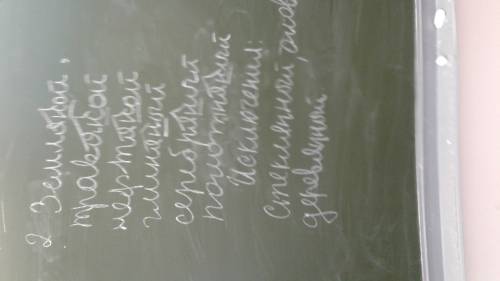 2. Земляной,
травяной
нефтяной
глиняный
серебряный
полотняный
Исключения:
стеклянный, олов
деревянный